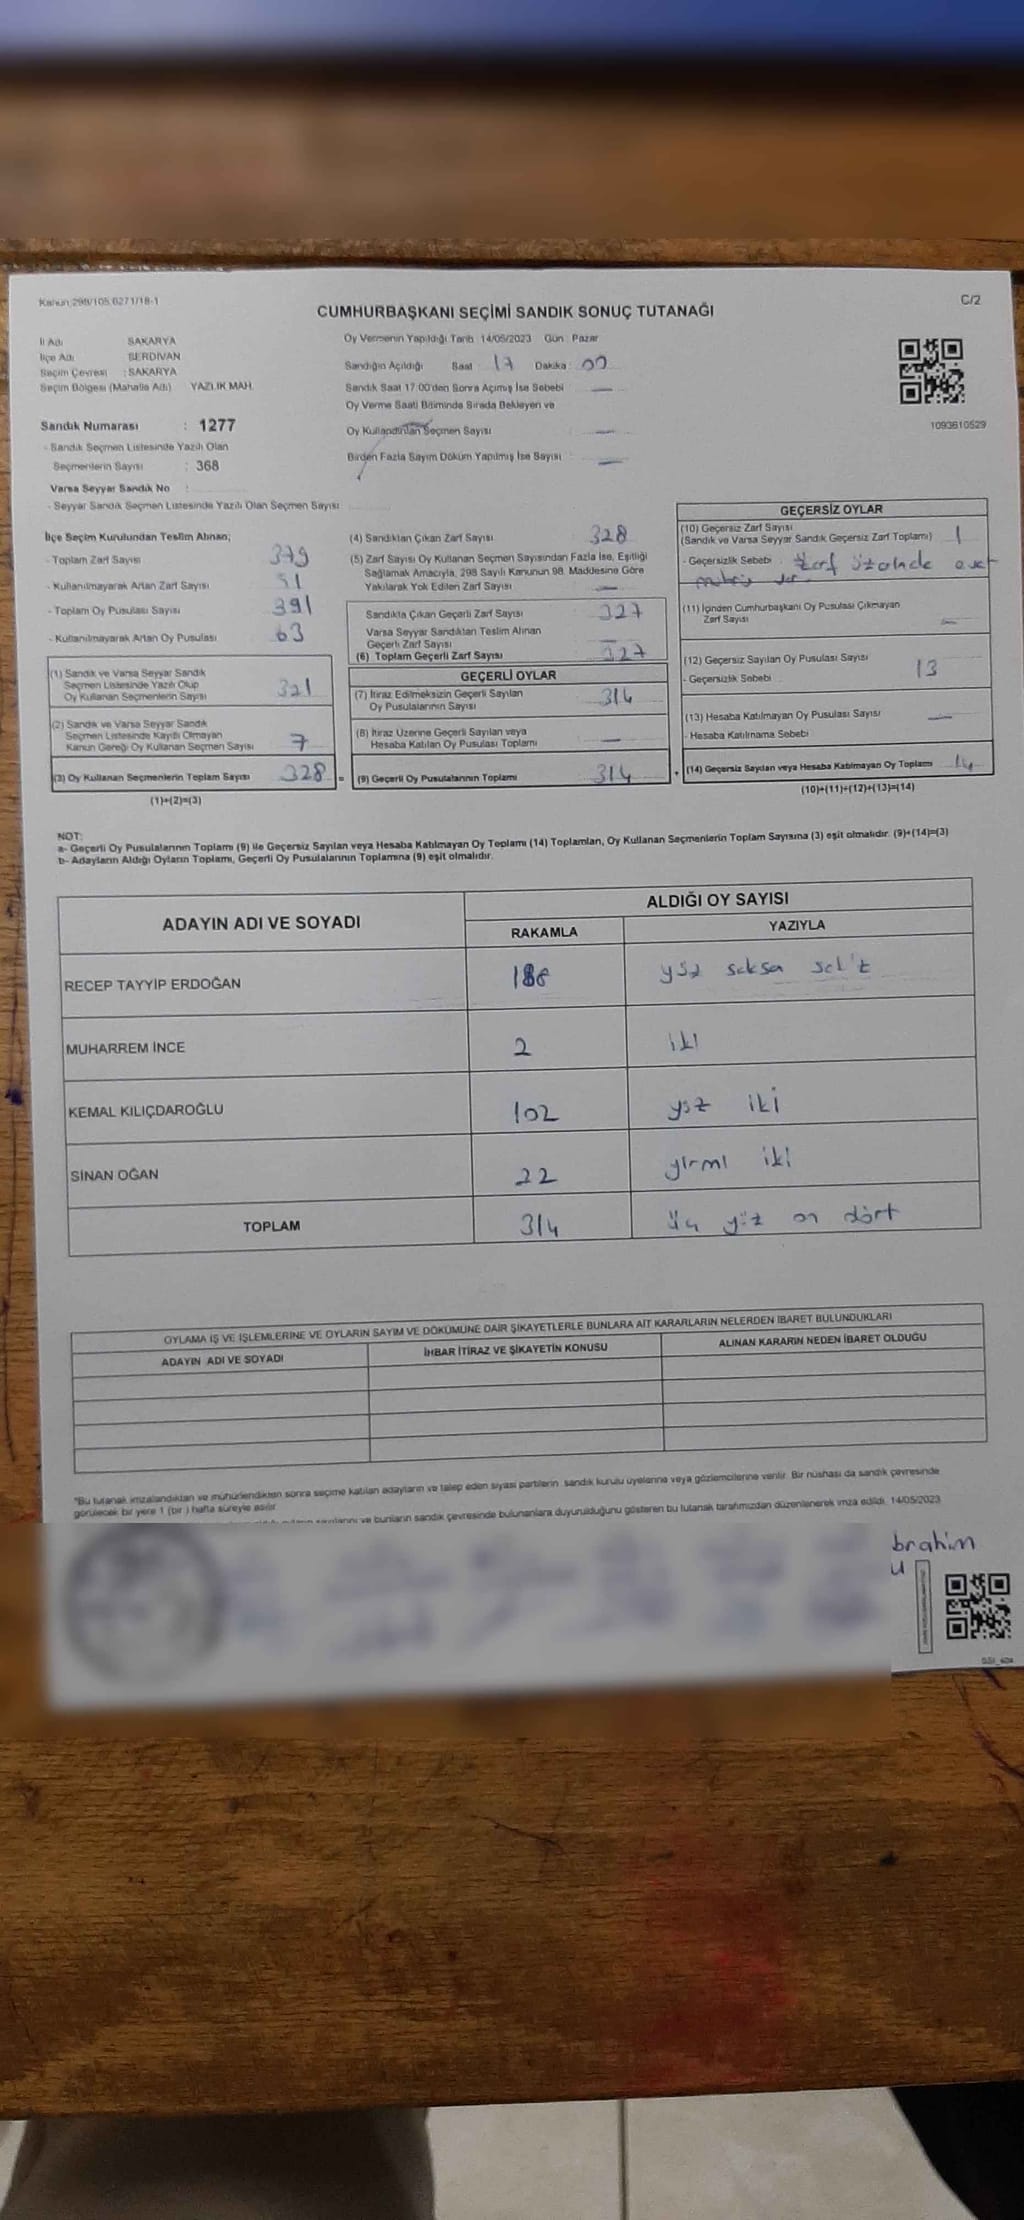 Kanun:298/105.6271/18-1
C/2
CUMHURBAŞKANI SEÇİMİ SANDIK SONUÇ TUTANAĞI
İl Adı SAKARYA
İlçe Adı SERDİVAN
Seçim Çevresi : SAKARYA
Seçim Bölgesi (Mahalle Adı) YAZLIK MAH.
Sandık Numarası : 1277
- Sandık Seçmen Listesinde Yazılı Olan
Seçmenlerin Sayısı : 368
Varsa Seyyar Sandık No :
- Seyyar Sandık Seçmen Listesinde Yazılı Olan Seçmen Sayısı
Oy Vermenin Yapıldığı Tarih 14/05/2023 Gün : Pazar
Sandığın Açıldığı Saat 17 Dakika : 00
Sandık Saat 17:00'den Sonra Açımış İse Sebebi —
Oy Verme Saati Bitiminde Sırada Bekleyen ve
Oy Kullandırılan Seçmen Sayısı —
Birden Fazla Sayım Döküm Yapılmış İse Sayısı : —
1093610529
İlçe Seçim Kurulundan Teslim Alınan;
- Toplam Zarf Sayısı 379
- Kullanılmayarak Artan Zarf Sayısı 51
- Toplam Oy Pusulası Sayısı 391
- Kullanılmayarak Artan Oy Pusulası 63
(1) Sandık ve Varsa Seyyar Sandık
Seçmen Listesinde Yazılı Olup
Oy Kullanan Seçmenlerin Sayısı 321
(2) Sandık ve Varsa Seyyar Sandık
Seçmen Listesinde Kayıtlı Olmayan
Kanun Gereği Oy Kullanan Seçmen Sayısı 7
(3) Oy Kullanan Seçmenlerin Toplam Sayısı 328 =
(1)+(2)=(3)
(4) Sandıktan Çıkan Zarf Sayısı 328
(5) Zarf Sayısı Oy Kullanan Seçmen Sayısından Fazla İse, Eşitliği
Sağlamak Amacıyla, 298 Sayılı Kanunun 98. Maddesine Göre
Yakılarak Yok Edilen Zarf Sayısı —
Sandıkta Çıkan Geçerli Zarf Sayısı 327
Varsa Seyyar Sandıktan Teslim Alınan
Geçerli Zarf Sayısı —
(6) Toplam Geçerli Zarf Sayısı 327
GEÇERLİ OYLAR
(7) İtiraz Edilmeksizin Geçerli Sayılan
Oy Pusulalarının Sayısı 314
(8) İtiraz Üzerine Geçerli Sayılan veya
Hesaba Katılan Oy Pusulası Toplamı —
(9) Geçerli Oy Pusulalarının Toplamı 314 +
GEÇERSİZ OYLAR
(10) Geçersiz Zarf Sayısı
(Sandık ve Varsa Seyyar Sandık Geçersiz Zarf Toplamı) 1
- Geçersizlik Sebebi : zarf üzerinde evet
(11) İçinden Cumhurbaşkanı Oy Pusulası Çıkmayan
Zarf Sayısı —
(12) Geçersiz Sayılan Oy Pusulası Sayısı 13
- Geçersizlik Sebebi
(13) Hesaba Katılmayan Oy Pusulası Sayısı —
- Hesaba Katılmama Sebebi
(14) Geçersiz Sayılan veya Hesaba Katılmayan Oy Toplamı 14
(10)+(11)+(12)+(13)=(14)
NOT:
a- Geçerli Oy Pusulalarının Toplamı (9) ile Geçersiz Sayılan veya Hesaba Katılmayan Oy Toplamı (14) Toplamları, Oy Kullanan Seçmenlerin Toplam Sayısına (3) eşit olmalıdır. (9)+(14)=(3)
b- Adayların Aldığı Oyların Toplamı, Geçerli Oy Pusulalarının Toplamına (9) eşit olmalıdır.
ADAYIN ADI VE SOYADI
ALDIĞI OY SAYISI
RAKAMLA YAZIYLA
RECEP TAYYİP ERDOĞAN 188
MUHARREM İNCE 2 iki
KEMAL KILIÇDAROĞLU 102 yüz iki
SİNAN OĞAN 22 yirmi iki
TOPLAM 314 üç yüz on dört
OYLAMA İŞ VE İŞLEMLERİNE VE OYLARIN SAYIM VE DÖKÜMÜNE DAİR ŞİKAYETLERLE BUNLARA AİT KARARLARIN NELERDEN İBARET BULUNDUKLARI
ADAYIN ADI VE SOYADI İHBAR İTİRAZ VE ŞİKAYETİN KONUSU ALINAN KARARIN NEDEN İBARET OLDUĞU
*Bu tutanak imzalandıktan ve mühürlendikten sonra seçime katılan adayların ve talep eden siyasi partilerin sandık kurulu üyelerine veya gözlemcilerine verilir. Bir nüshası da sandık çevresinde
görülecek bir yere 1 (bir ) hafta süreyle asılır.
ve bunların sandık çevresinde bulunanlara duyurulduğunu gösteren bu tutanak tarafımızdan düzenlenerek imza edildi. 14/05/2023
brahim